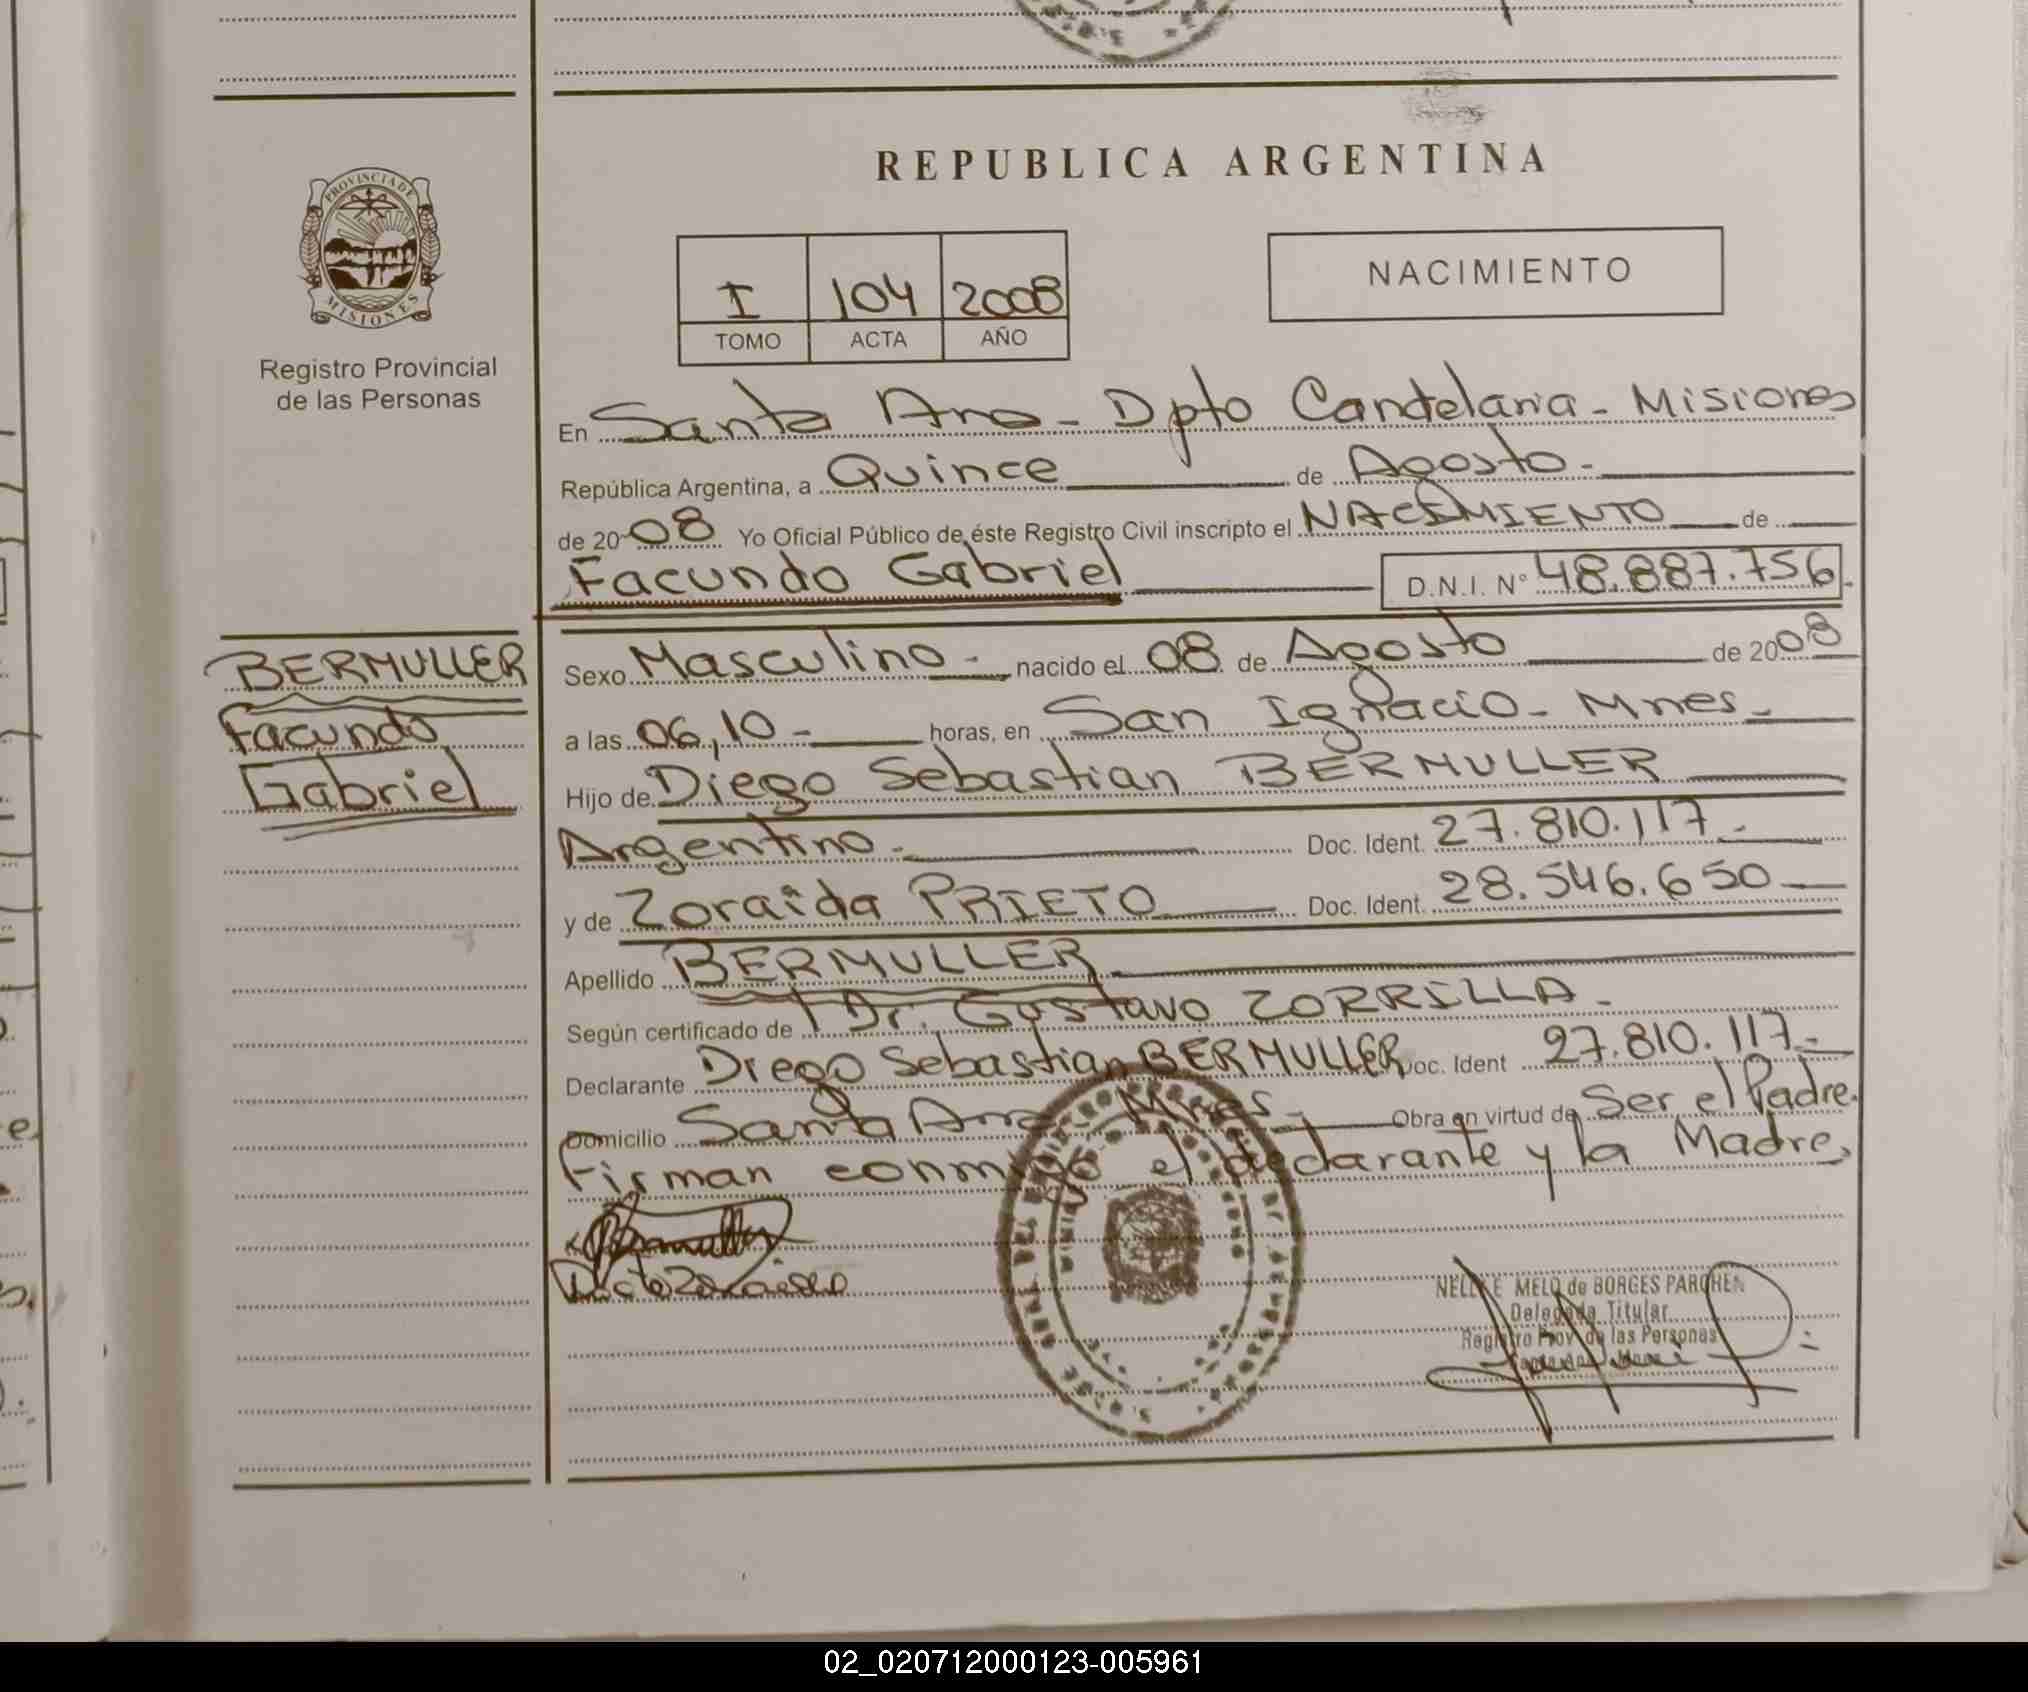 REPUBLICA ARGENTINA
PROVINCIA DE MISIONES
Registro Provincial
de las Personas
I 104 2008
TOMO ACTA AÑO
NACIMIENTO
En Santa Ana - Dpto Candelaria - Misiones
República Argentina, a Quince de Agosto.
de 2008 Yo Oficial Público de éste Registro Civil inscripto el NACIMIENTO de
Facundo Gabriel D.N.I. Nº 48.887.756.
BERMULLER
Facundo
Gabriel
Sexo Masculino. nacido el 08 de Agosto de 2008
a las 06,10 - horas, en San Ignacio - Mnes -
Hijo de Diego Sebastian BERMULLER
Argentino. Doc. Ident. 27.810.117 -
y de Zoraida PRIETO Doc. Ident. 28.546.650
Apellido BERMULLER
Según certificado de Dr. Gustavo ZORRILLA.
Declarante Diego Sebastian BERMULLER Doc. Ident 27.810.117.-
Domicilio Santa Ana Mnes. Obra en virtud de Ser el Padre.
Firman conmigo el declarante y la Madre.
Bermuller
Zoraida
NELLI E MELO de BORGES PARCHEN
Delegada Titular
Registro Prov. de las Personas
Santa Ana Mnes
02_020712000123-005961